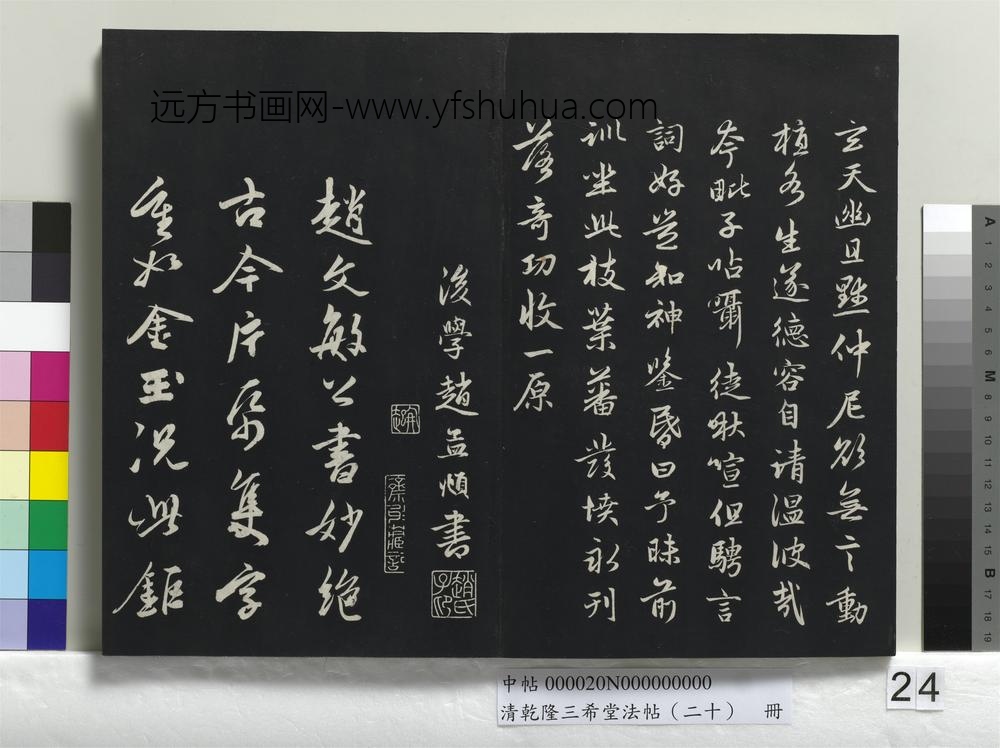 远方书画网-www.yfshuhua.com
玄天幽且默仲尼欲無言動
植各生遂德容自清温彼哉
夸毗子呫囁徒啾喧但騁言
詞好豈知神鑒昏曰予昧前
訓坐此枝葉蕃發憤永刊
落奇功收一原
後學趙孟頫書
趙氏子昂
趙文敏公書妙絶
古今片帋隻字
重如金玉況此鉅
中帖 000020N000000000
清乾隆三希堂法帖（二十） 冊
24
A 1 2 3 4 5 6 M 8 9 10 11 12 13 14 15 B 17 18 19